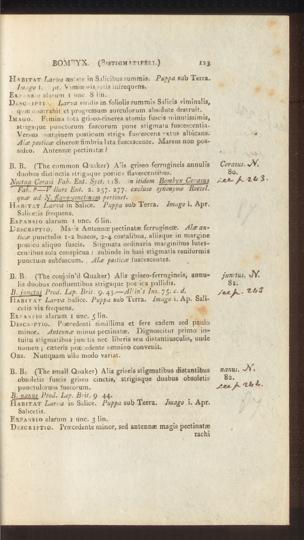 BOMBYX. (BISTIGMATIFERI.) 123
HABITAT Larva æstate in Salicibus summis. Puppa sub Terra.
Imago i. pr. Viminetis satis infrequens.
EXPANSIO alarum 1 unc. 8 lin.
DESCRIPTIO. Larva nuditus in foliolis summis Salicis viminalis,
quæ contrahit et progressum surculorum absolute destruit.
IMAGO. Femina tota griseo-cinerea atomis fuscis minutissimis,
strigaque punctorum fuscorum pone stigmata fuscescentia.
Versus marginem posticum striga fuscescens extus albicans.
Alæ posticæ cinereæ fimbria lata fuscescente. Marem non pos-
sideo. Antennæ pectinatæ?
B. B. (The common Quaker) Alis griseo ferrugineis annulis
duobus distinctis strigaque postica flavescentibus.
Noctua Cerasi Fab. Ent. Syst. 118. in iisdem Bombyx Cerasus
Fab. ?—V ilars Ent. 2. 257. 277. excluso synonymo Roesel.
quæ ad N. flavo-punctatam pertinet.
HABITAT Larva in Salice. Puppa sub Terra. Imago i. Apr.
Salicetis frequens.
EXPANSIO alarum 1 unc. 6 lin.
DESCRIPTIO. Maris Antennæ pectinatæ ferrugineæ. Alæ an-
ticæ punctulis 1-2 baseos, 2-4 costalibus, aliisque in margine
postico aliquo fuscis. Stigmata ordinaria marginibus lutes-
centibus sola conspicua; subinde in basi stigmatis reniformis
punctum subfuscum. Alæ posticæ fuscescentes.
Cerasus. N.
80.
see p. 263.
B. B. (The conjoin'd Quaker) Alis griseo-ferrugineis, annu-
lis duobus confluentibus strigaque postica pallidis.
B. junctus Prod. Lep. Brit. 9. 43.—Albin's Ins. 75. c. d.
HABITAT Larva Salice. Puppa sub Terra. Imago i. Ap. Sali-
cetis vix frequens.
EXPANSIO alarum 1 unc. 5 lin.
DESCRIPTIO. Præcedenti simillima et fere eadem sed paulo
minor. Antennæ minus pectinatæ. Dignoscitur primo in-
tuitu stigmatibus junctis nec liberis seu distantiusculis, unde
nomen; cæteris præcedente omnino convenit.
OBS. Nunquam ullo modo variat.
junctus. N.
81.
see p. 263
B. B. (The small Quaker) Alis griseis stigmatibus distantibus
obsoletis fuscis griseo cinctis, strigisque duabus obsoletis
punctulorum fuscorum.
B. nanus Prod. Lep. Brit. 9. 44.
HABITAT Larva in Salice. Puppa sub Terra. Imago i. Apr.
Salicetis.
EXPANSIO alarum 1 unc. 3 lin.
DESCRIPTIO. Præcedente minor, sed antennæ magis pectinatæ
rachi
nanus. N.
82.
see p. 264.